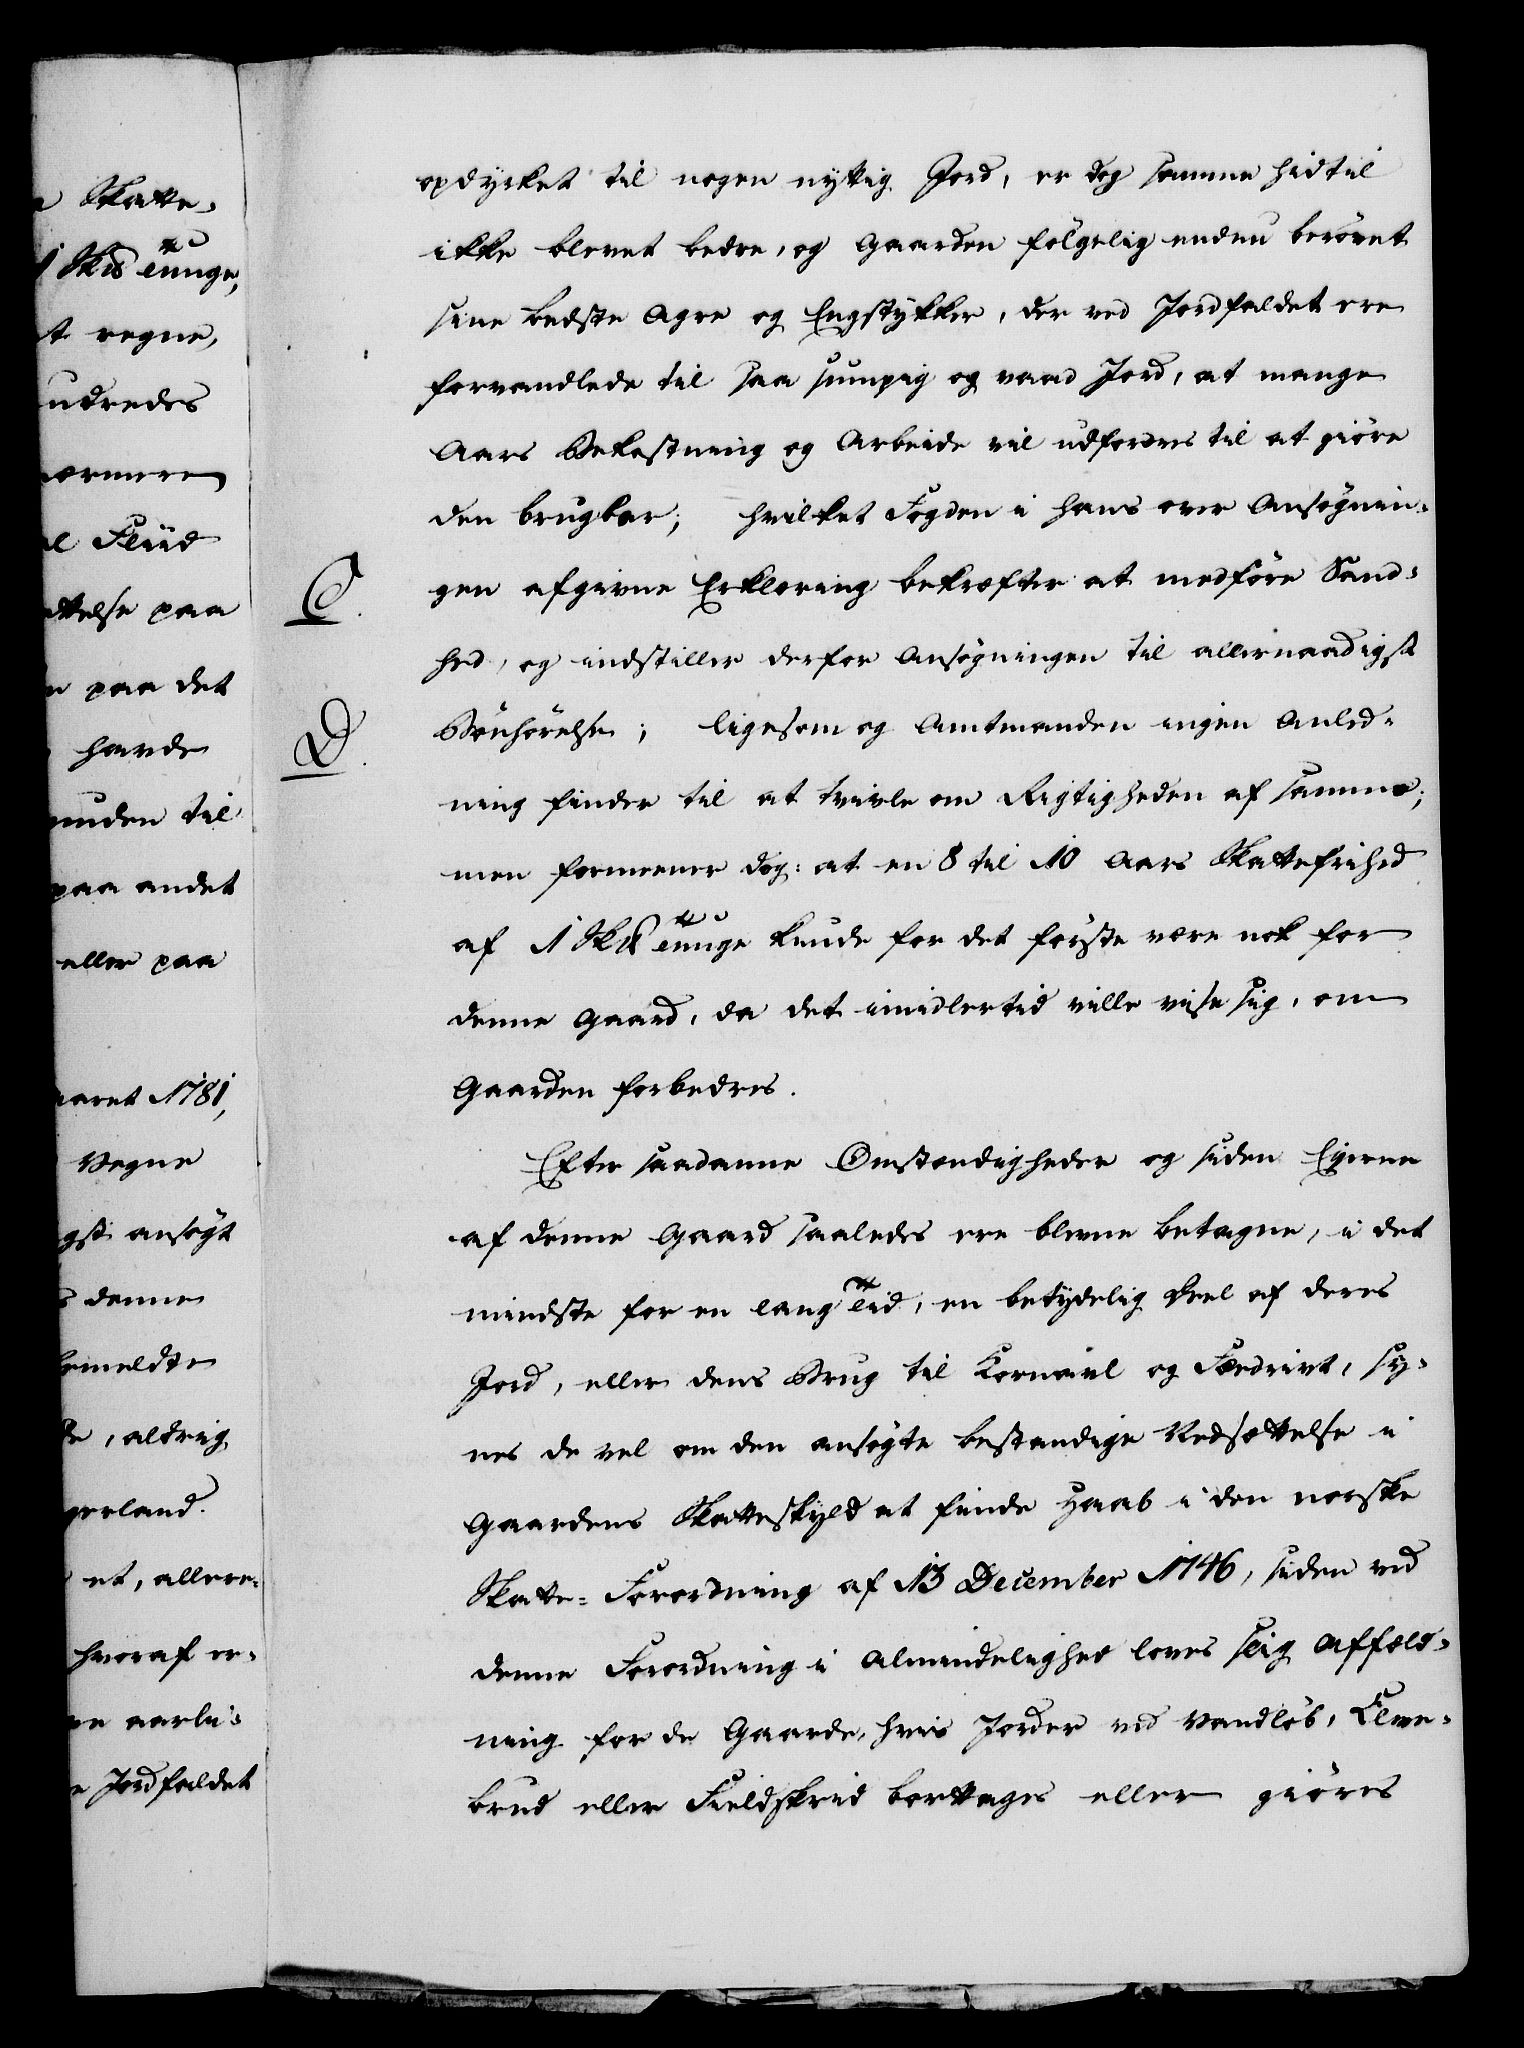 Skatte-
1 Sk℔ Tunge,
t regne,
udredes
ærmere
l Fliid
ttelse paa
paa det
havde
unden til
paa andet
eller paa
aaret 1781,
Vegne
gst ansøgt
denne
bemeldte
, aldrig
gerland.
et, allere-
hvoraf er-
aarli-
Jordfaldet
opdyrket til nogen nyttig Jord, er dog samme hidtil
ikke blevet bedre, og Gaarden følgelig endnu berøvet
sine bedste Agre og Engstykker, der ved Jordfaldet ere
forvandlede til saa sumpig og vaad Jord, at mange
Aars Bekostning og Arbeide vil udfordres til at giøre
den brugbar; hvilket Fogden i hans over Ansøgnin-
C.
gen afgivne Erklæring bekræfter at medføre Sand-
hed, og indstiller derfor Ansøgningen til allernaadigst
D.
Bønhørelse; ligesom og Amtmanden ingen Anled-
ning finder til at tvivle om Rigtigheden af samme;
men formeener dog: at en 8 til 10 Aars Skattefrihed
af 1 Sk℔ Tunge kunde for det første være nok for
denne Gaard, da det imidlertid ville vise sig, om
Gaarden forbedres.
Efter saadanne Omstændigheder og siden Eierne
af denne Gaard saaledes ere blevne betagne, i det
mindste for en lang Tid, en betydelig Deel af deres
Jord, eller dens Brug til Kornavl og Fædrivt, sy-
nes de vel om den ansøgte bestandige Nedsættelse i
Gaardens Skatteskyld at finde Haab i den norske
Skatte-Forordning af 13 December 1746, siden ved
denne Forordning i Almindelighed loves slig Affæld-
ning for de Gaarde, hvis Jorder ved Vandløb, Elve-
brud eller Fieldskred borttages eller giøres